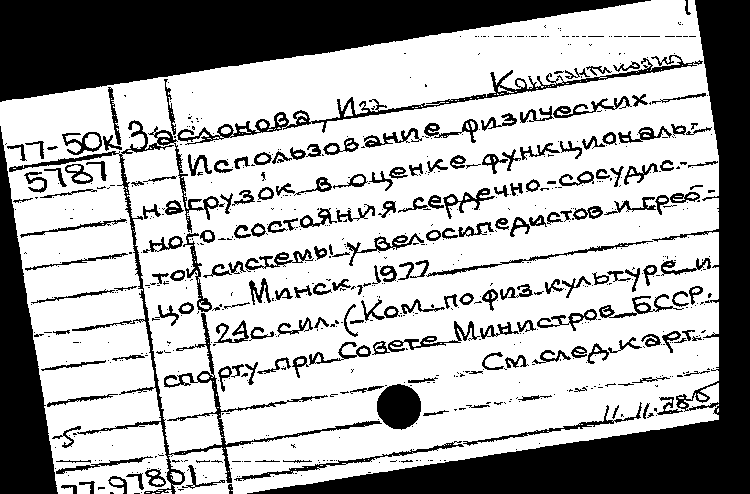 77-50к
5787
Заслонова, Иза Константиновна
Использование физических
нагрузок в оценке функциональ-
ного состояния сердечно-сосудис-
той системы у велосипедистов и греб-
цов. Минск, 1977
24с. сил. (Ком. по физ. культуре и
спорту при Совете Министров БССР.
См. след. карт.
5
11.11.78
77-97801